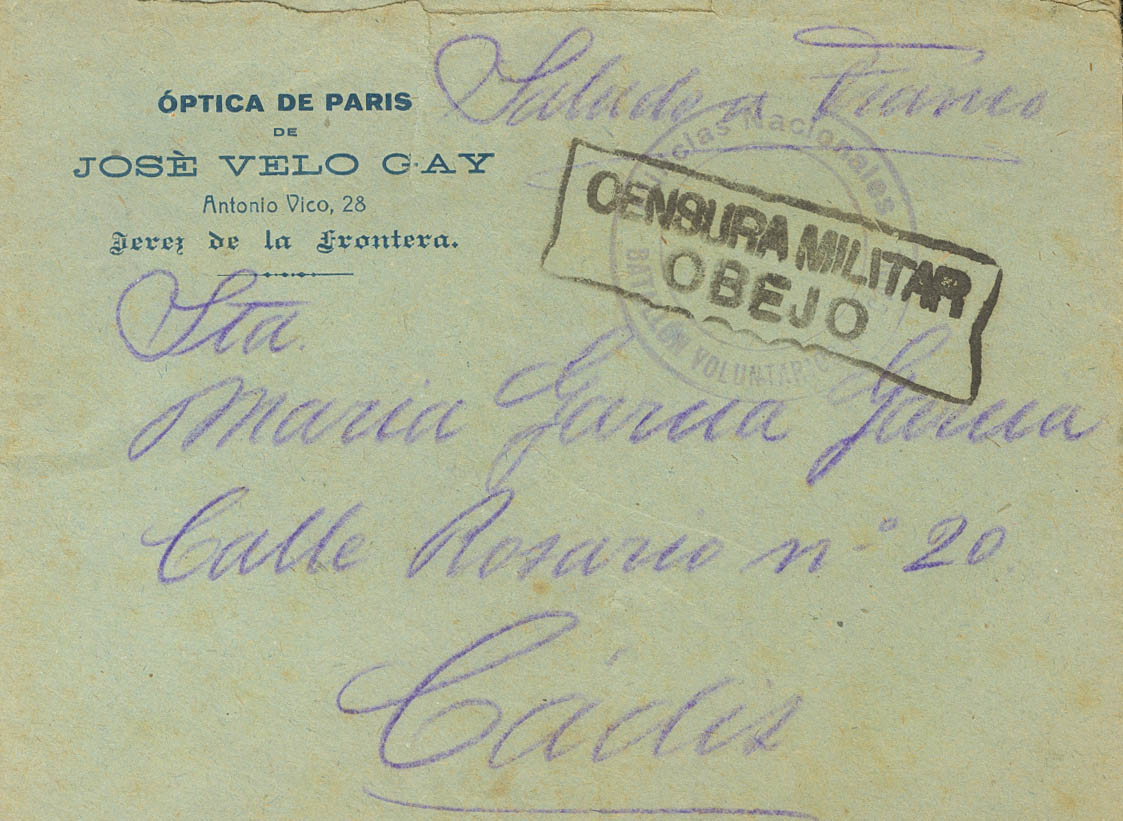 Saludo a Franco
ÓPTICA DE PARIS
DE
JOSÈ VELO GAY
Antonio Vico, 28
Jerez de la Frontera.
Nacionales
BATALLÓN VOLUNTARIOS
CENSURA MILITAR
OBEJO
Sta.
Maria Garcia Garcia
Calle Rosario nº 20.
Cádiz